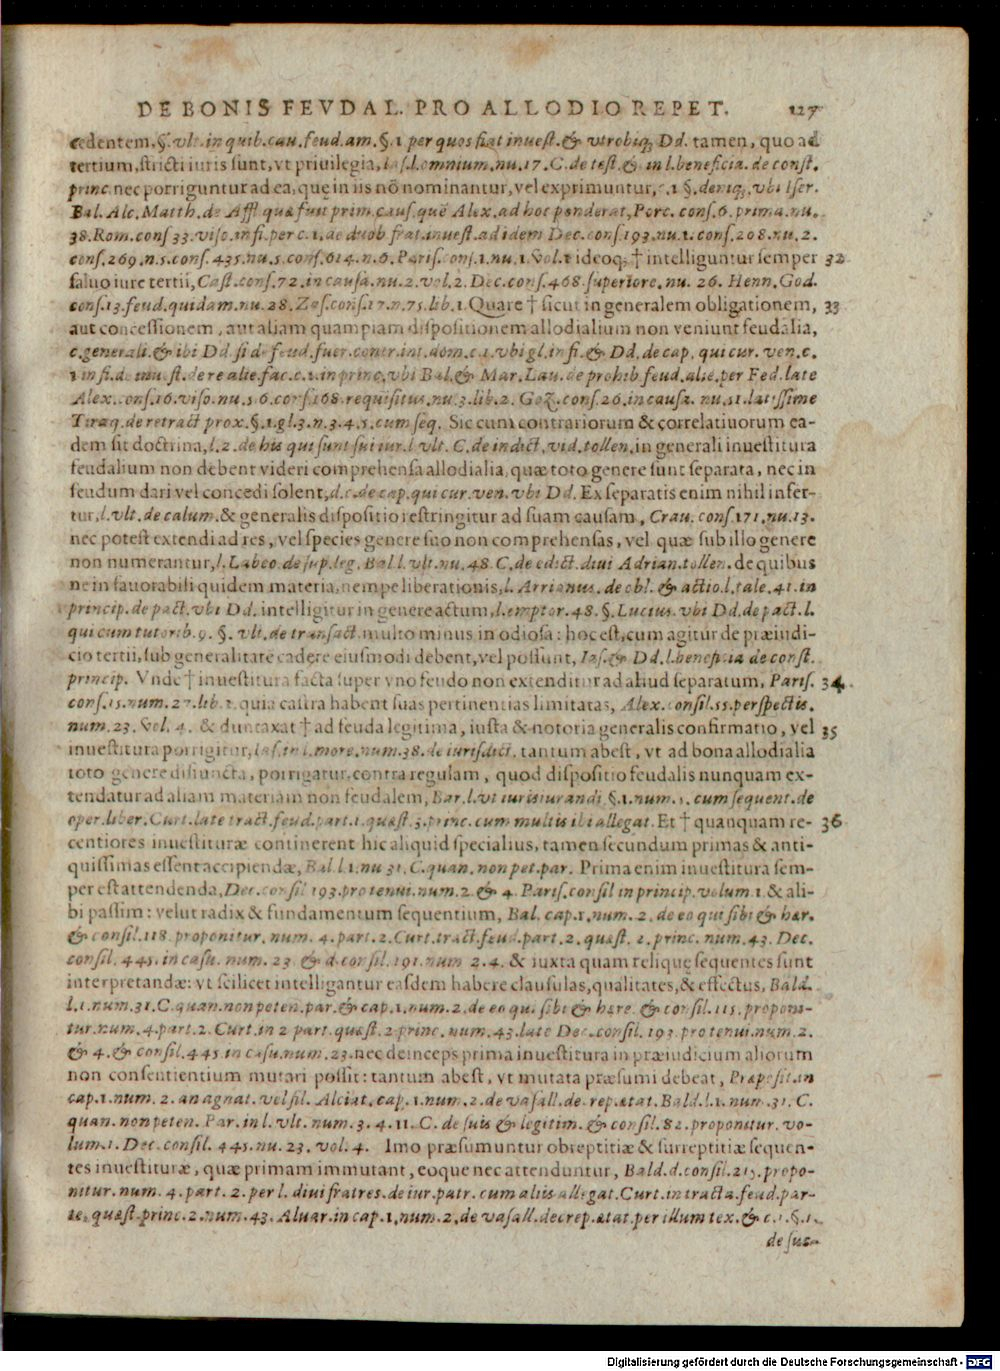 DE BONIS FEVDAL. PRO ALLODIO REPET. 127
cedentem. §. vlt. in quib. cau. feud. am. §. 1 per quos fiat inuest. & vtrobiq; Dd. tamen, quo ad
tertium, stricti iuris sunt, vt priuilegia, Ias. l. omnium. nu. 17. C. de test. & in l. beneficia. de const.
princ. nec porriguntur ad ea, quę in iis nō nominantur, vel exprimuntur, c. 1 §. deniq; vbi Iser.
Bal. Alc. Matth. de Affl. qua fuit prim. caus. quē Alex. ad hoc ponderat, Porc. cons. 6. prima. nu.
38. Rom. cons 33. viso. in fi. per c. 1. de duob frat. inuest. ad idem Dec. cons. 193. nu. 1. cons. 208. nu. 2.
cons. 269. n. 5. cons. 435. nu. 5. cons. 614. n. 6. Paris. cons. 1. nu. 1. Vol. 1 ideoq; † intelliguntur semper 32
saluo iure tertii, Cast. cons. 72. in causa. nu. 2. vol. 2. Dec. cons. 468. superiore. nu. 26. Henn. God.
cons. 13. feud. quidam. nu. 28. Zas. cons. 17. n. 75. lib. 1. Quare † sicut in generalem obligationem, 33
aut concessionem, aut aliam quampiam dispositionem allodialium non veniunt feudalia,
c. generali. & ibi Dd. si de feud. fuer. contr. int. dom. c. 1. vbi gl. in fi. & Dd. de cap. qui cur. ven. c.
1 in fi. de inuest. de re alie. fac. c. 1. in princ. vbi Bal. & Mar. Lau. de prohib feud. alie. per Fed. late
Alex. cons. 16. viso. nu. 5. 6. cons. 168. requisitus. nu. 3. lib. 2. Goz. cons. 26. in causa. nu. 51. latissime
Tiraq. de retract prox. §. 1. gl. 3. n. 3. 4. 5. cum seq. Sic cum contrariorum & correlatiuorum ea-
dem sit doctrina, l. 2. de his qui sunt sui iur. l. vlt. C. de indict. vid. tollen. in generali inuestitura
feudalium non debent videri comprehensa allodialia, quæ toto genere sunt separata, nec in
feudum dari vel concedi solent, d. c. de cap. qui cur. ven. vbi Dd. Ex separatis enim nihil infer-
tur, l. vlt. de calum. & generalis dispositio restringitur ad suam causam, Crau. cons. 171. nu. 13.
nec potest extendi ad res, vel species genere suo non comprehensas, vel quæ sub illo genere
non numerantur, l. Labeo. de sup. leg. Bal l. vlt. nu. 48. C. de edict. diui Adrian. tollen. de quibus
ne in fauorabili quidem materia, nempe liberationis, l. Arrianus. de obl. & actio. l. tale. 41. in
princip. de pact. vbi Dd. intelligitur in genere actum, l. emptor. 48. §. Lucius. vbi Dd. de pact. l.
qui cum tutorib. 9. §. vlt. de transact. multo minus in odiosa: hoc est, cum agitur de præiudi-
cio tertii, sub generalitate cadere eiusmodi debent, vel possunt, Ias. & Dd. l. beneficia de const.
princip. Vnde † inuestitura facta super vno feudo non extenditur ad aliud separatum, Paris. 34
cons. 15. num. 27. lib. 1. quia castra habent suas pertinentias limitatas, Alex. consil. 55. perspectis.
num. 23. Vol. 4. & duntaxat † ad feuda legitima, iusta & notoria generalis confirmatio, vel 35
inuestitura porrigitur, Ias. in l. more. num. 38. de iurisdict. tantum abest, vt ad bona allodialia
toto genere disiuncta, porrigatur. contra regulam, quod dispositio feudalis nunquam ex-
tendatur ad aliam materiam non feudalem, Bar. l. vt iurisiurandi §. 1. num. 1. cum sequent. de
oper. liber. Curt. late tract. feud. part. 1. quæst. 3. princ. cum multis ibi allegat. Et † quanquam re- 36
centiores inuestituræ continerent hic aliquid specialius, tamen secundum primas & anti-
quissimas essent accipiendæ, Bal l. 1. nu 31. C. quan. non pet. par. Prima enim inuestitura sem-
per est attendenda, Dec. consil 193. pro tenui. num. 2. & 4. Paris. consil in princip. volum. 1. & ali-
bi passim: velut radix & fundamentum sequentium, Bal. cap. 1. num. 2. de eo qui sibi & hær.
& consil. 118. proponitur. num. 4. part. 2. Curt. tract. feud. part. 2. quæst. 2. princ. num. 43. Dec.
consil. 445. in casu. num. 23. & d. consil. 191. num 2. 4. & iuxta quam relique sequentes sunt
interpretandæ: vt scilicet intelligantur easdem habere clausulas, qualitates, & effectus, Bald.
l. 1. num. 31. C. quan. non peten. par. & cap. 1. num. 2. de eo qui sibi & hære. & consil. 115. proponi-
tur. num. 4. part. 2. Curt. in 2 part. quæst. 2 princ. num. 43. late Dec. consil. 193. pro tenui. num. 2.
& 4. & consil. 445. in casu. num. 23. nec deinceps prima inuestitura in præiudicium aliorum
non consentientium mutari possit: tantum abest, vt mutata præsumi debeat, Præposit. in
cap. 1. num. 2. an agnat. vel fil. Alciat. cap. 1. num. 2. de vasall. de- rep. ætat. Bald. l. 1. num. 31. C.
quan. non peten. Par. in l. vlt. num. 3. 4. 11. C. de suis & legitim. & consil. 82. proponitur. vo-
lum. 1. Dec. consil. 445. nu. 23. vol. 4. Imo præsumuntur obreptitiæ & surreptitiæ sequen-
tes inuestituræ, quæ primam immutant, eoque nec attenduntur, Bald. d. consil. 215. propo-
nitur. num. 4. part. 2. per l. diui fratres. de iur. patr. cum aliis allegat. Curt. in tracta. feud. par-
te. quæst. princ. 2. num. 43. Aluar. in cap. 1. num. 2. de vasall. decrep. ætat. per illum tex. & c. 1. §. 1.
de suc-
Digitalisierung gefördert durch die Deutsche Forschungsgemeinschaft - DFG